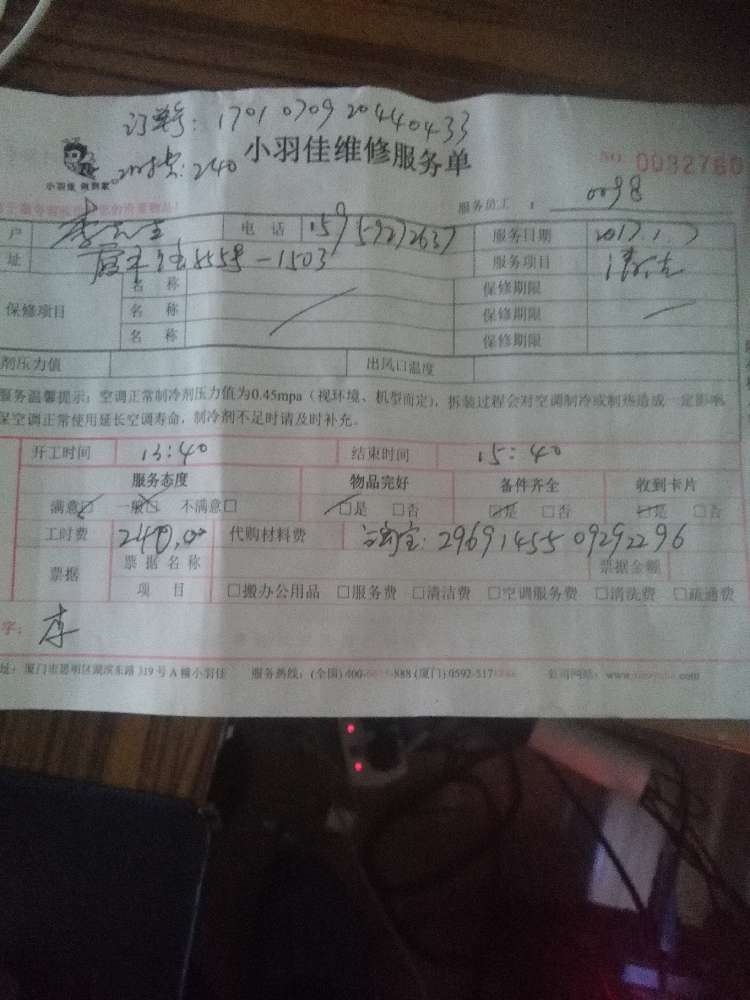 订单号：1701070920440433
工时费：240 小羽佳维修服务单 NO 0032780
小羽佳 做到家
服务员工： 0098
户 李先生 电 话 15959272637 服务日期 2017.1.7
址 558号-1503 服务项目 清洁
保修项目 名 称 保修期限
名 称 保修期限
名 称 保修期限
剂压力值 出风口温度
服务温馨提示：空调正常制冷剂压力值为0.45mpa（视环境、机型而定），拆装过程会对空调制冷或制热造成一定影响
保空调正常使用延长空调寿命，制冷剂不足时请及时补充。
开工时间 13:40 结束时间 15:40
服务态度 物品完好 备件齐全 收到卡片
满意□ 一般□ 不满意□ □是 □否 □是 □否 □是 □否
工时费 240.00 代购材料费 淘宝：2969145509292296
票据 票据名称 票据金额
项 目 □搬办公用品 □服务费 □清洁费 □空调服务费 □清洗费 □疏通费
字： 李
址：厦门市思明区湖滨东路319号A幢小羽佳 服务热线：(全国)400- -888 (厦门)0592-517 公司网站：www. .com